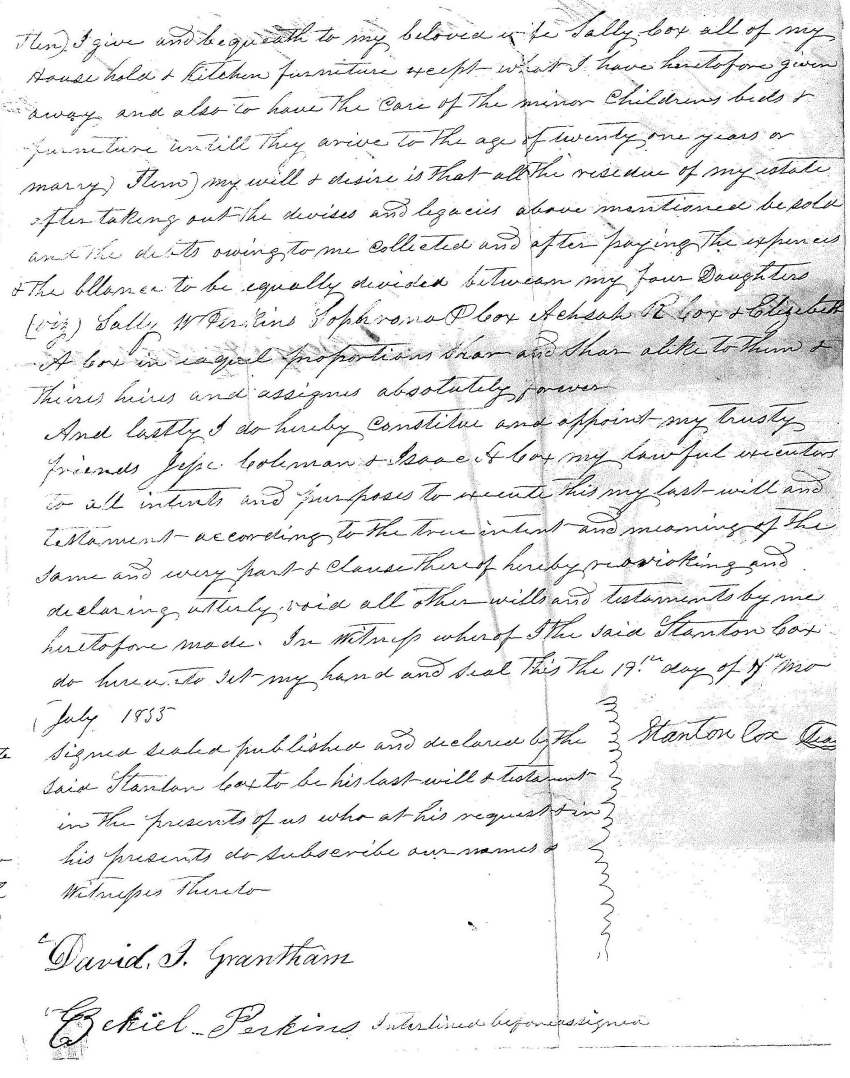 Item) I give and bequeath to my beloved wife Sally Cox all of my
House hold & Kitchen furniture except what I have heretofore given
away and also to have the care of the minor Childrens beds &
furneture untill they arive to the age of twenty one years or
marry) Item) my will & desire is that all the resedue of my estate
after taking out the devises and legacies above mentioned be sold
and the debts owing to me Collected and after paying the expences
& the bllance to be equally devided between my four Daughters
(viz) Sally W Perkins Sophrona P Cox Achsah R Cox & Elizebeth
A Cox in eaquel proportions Shar and Shar alike to them &
theires heires and assignes absolutely forever
And lastly I do hereby Constitue and appoint my trusty
friends Jesse Coleman & Isaac Cox my lawful executors
to all intents and purposes to execute this my last will and
testament according to the true intent and meaning of the
same and every part & Clause thereof hereby revoking and
declaring utterly void all other wills and testaments by me
heretofore made. In Witness wherof I the said Stanton Cox
do hereu to set my hand and seal this the 19th day of 7th mo
July 1835
Signed sealed published and declared by the
said Stanton Cox to be his last will & testament
in the presents of us who at his request & in
his presents do subscribe our names &
Witnesses thereto
Stanton Cox (Seal
David. J. Grantham
Ezekiel Perkins Interlined before assigned